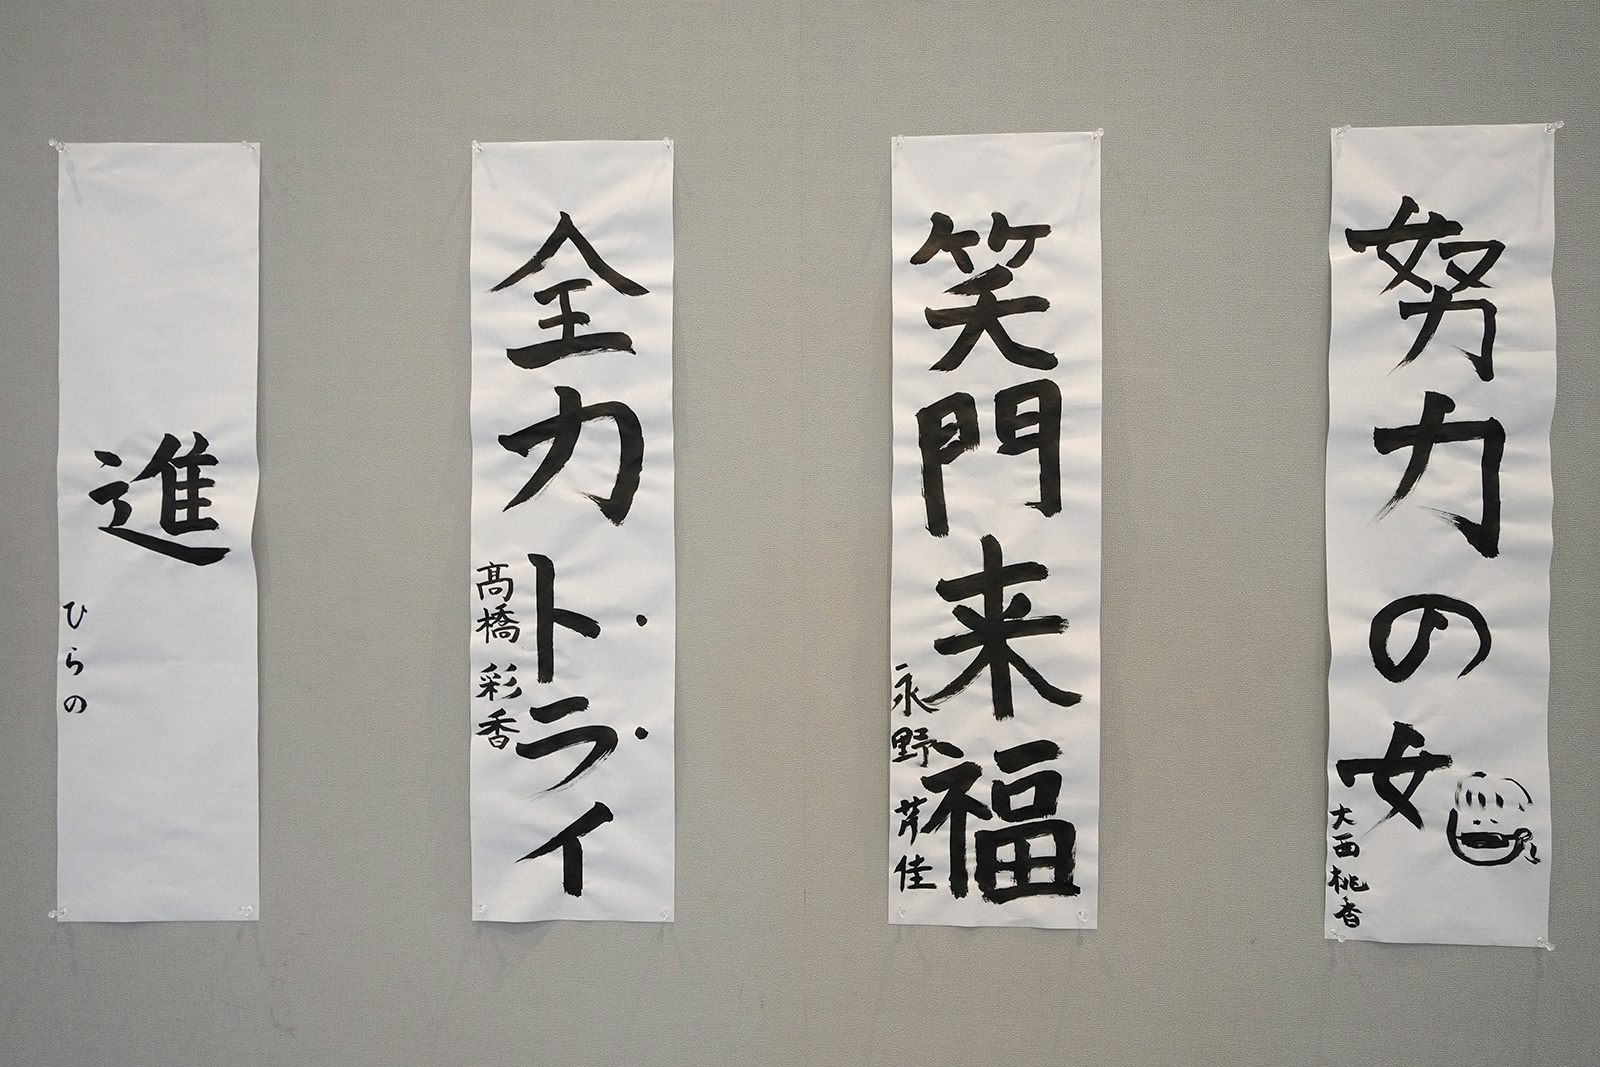 努力の女
大西桃香
笑門来福
永野芹佳
全力トライ
髙橋彩香
進
ひらの